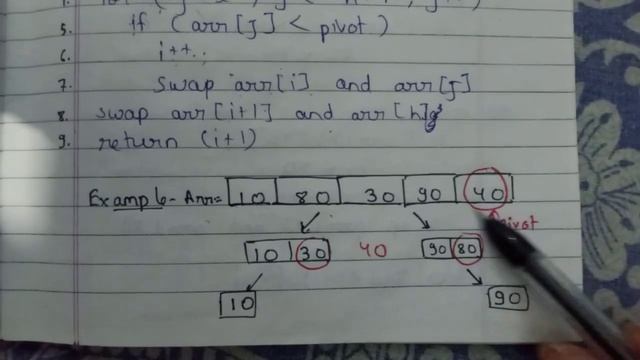 5. if (arr[j] < pivot)
6. i++;
7. swap arr[i] and arr[j]
8. swap arr[i+1] and arr[h]
9. return (i+1)
Example- Arr= 10 80 30 90 40
pivot
10 30 40 90 80
10 90